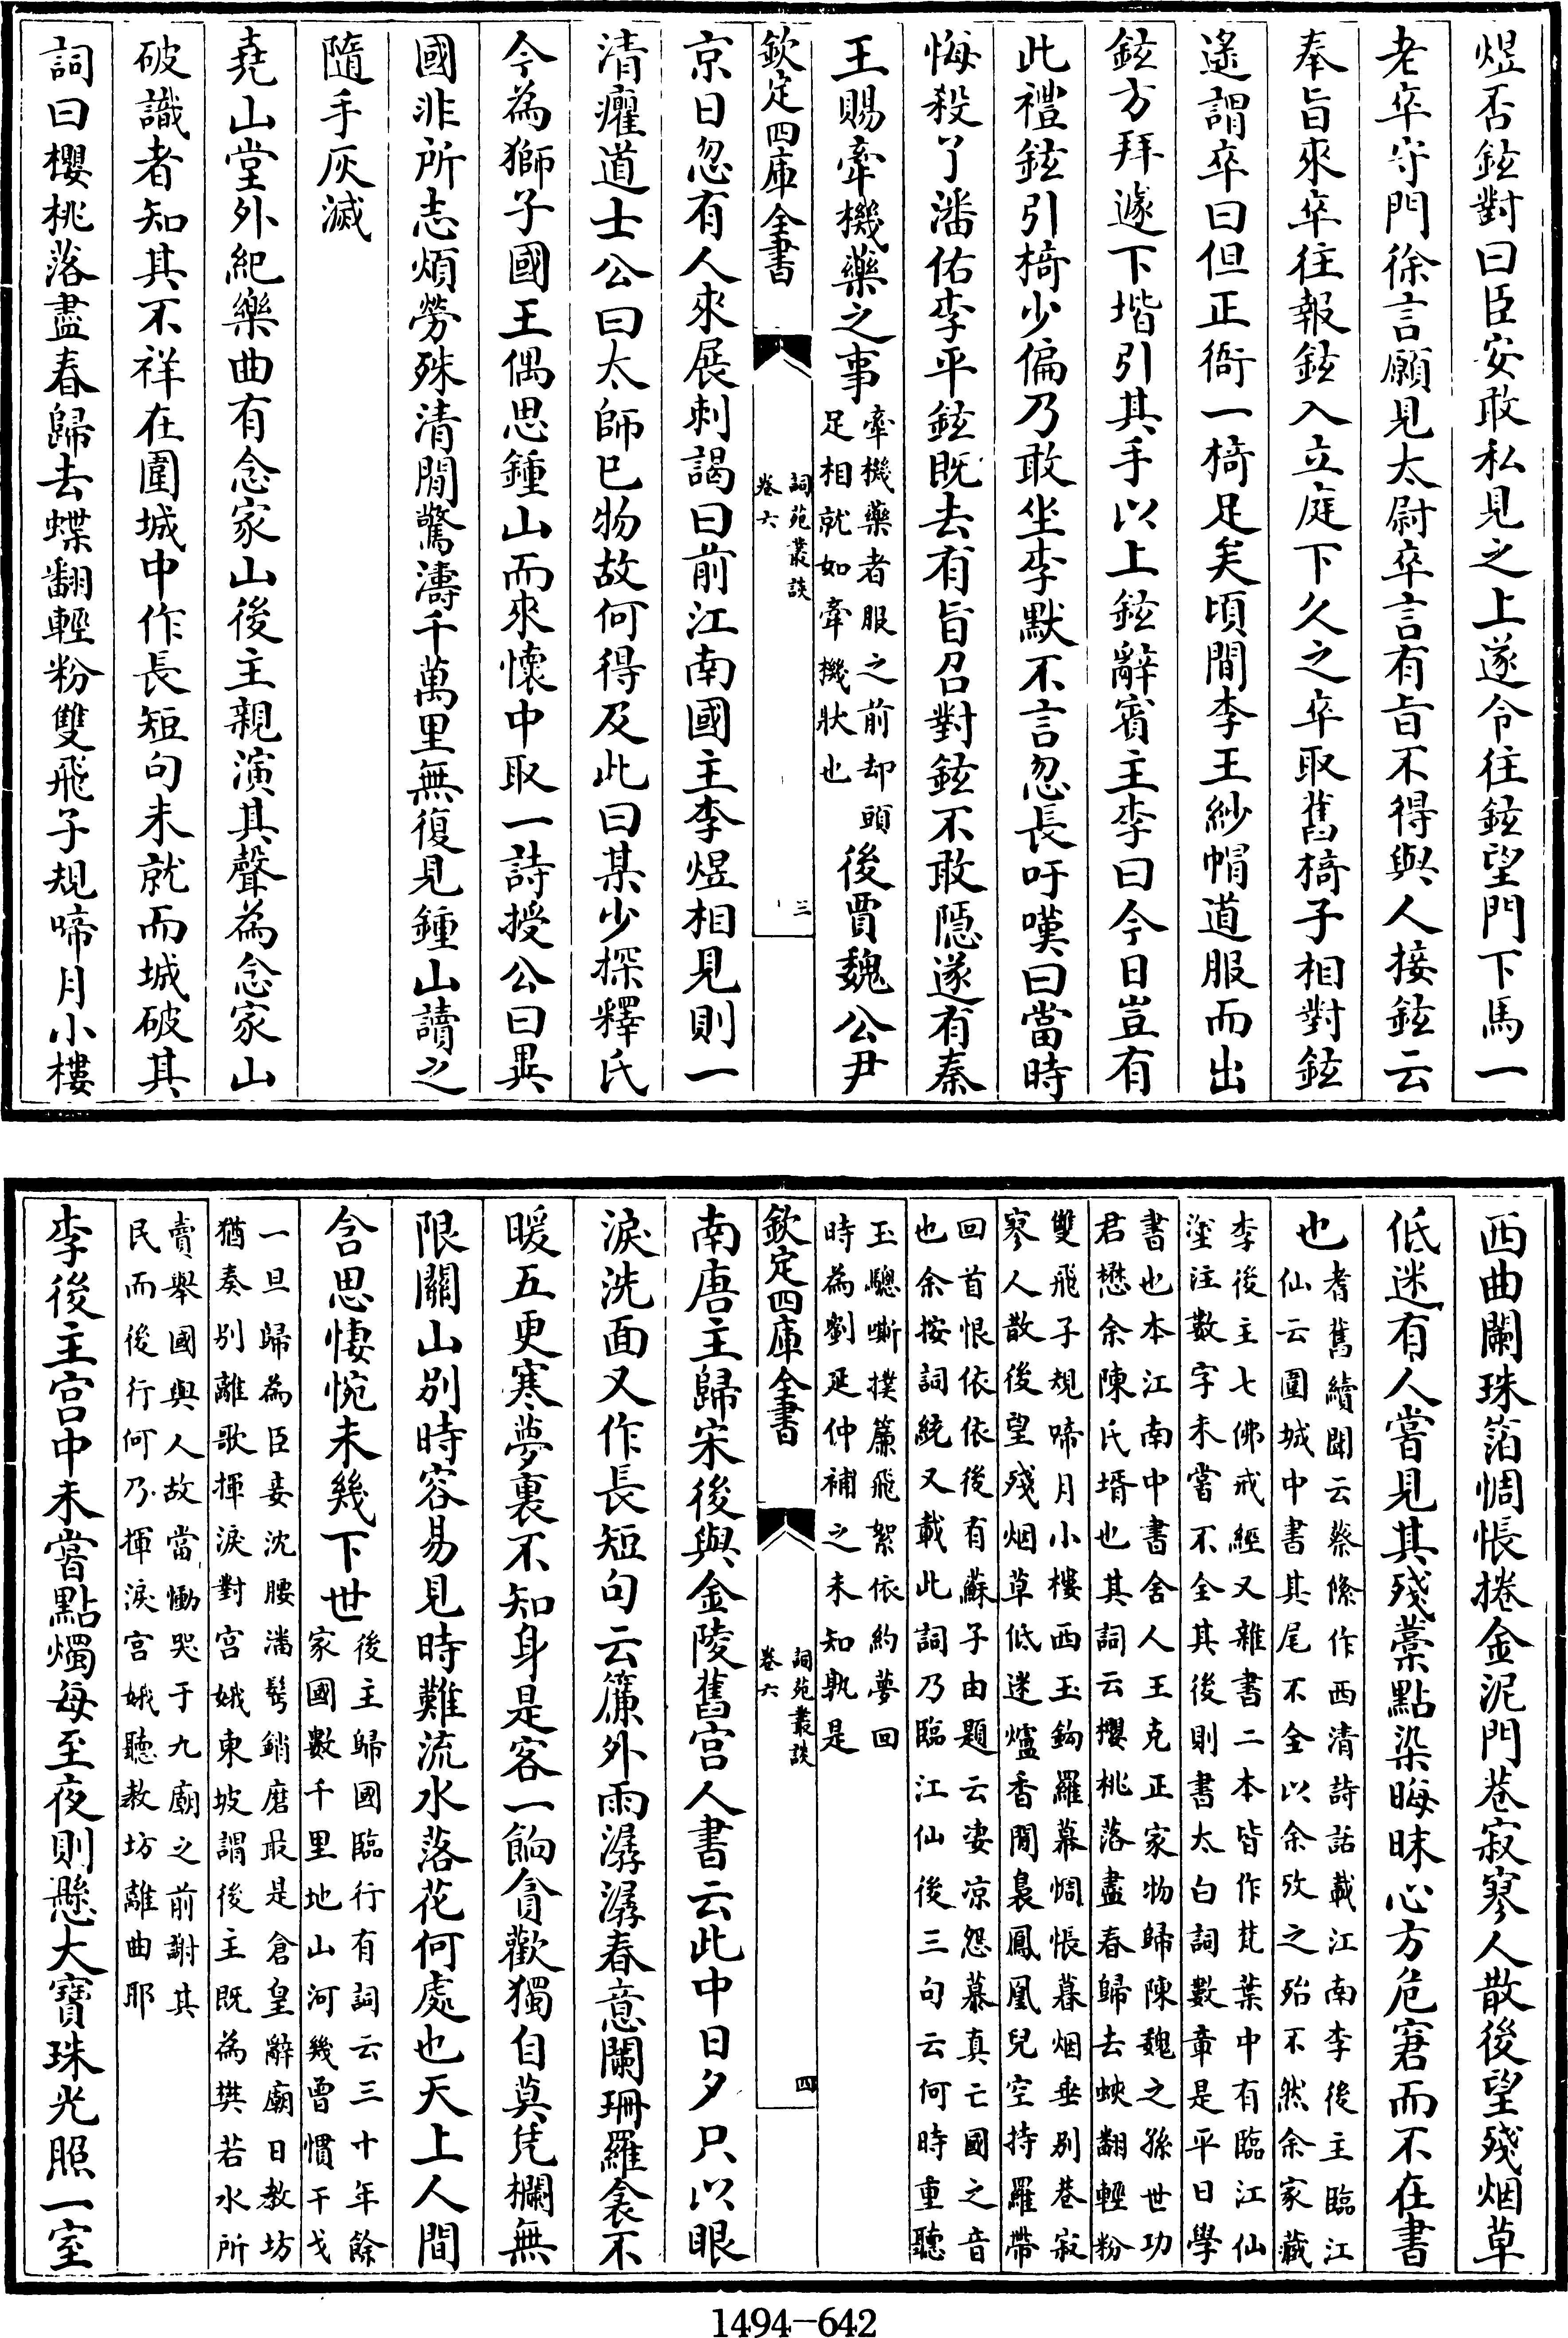 煜否鉉對曰臣安敢私見之上遂令往鉉望門下馬一
老卒守門徐言願見太尉卒言有旨不得與人接鉉云
奉旨來卒往報鉉入立庭下久之卒取舊椅子相對鉉
遙謂卒曰但正衙一椅足矣頃間李王紗帽道服而出
鉉方拜遽下堦引其手以上鉉辭賓主李曰今日豈有
此禮鉉引椅少偏乃敢坐李默不言忽長吁嘆曰當時
悔殺了潘佑李平鉉既去有旨召對鉉不敢隱遂有秦
王賜牽機藥之事
牽機藥者服之前却頭
足相就如牽機狀也
後賈魏公尹
欽定四庫全書
詞苑叢談
卷六
三
京日忽有人來展刺謁曰前江南國主李煜相見則一
清癯道士公曰太師已物故何得及此曰某少探釋氏
今為獅子國王偶思鍾山而來懷中取一詩授公曰異
國非所志煩勞殊清閒驚濤千萬里無復見鍾山讀之
隨手灰滅
堯山堂外紀樂曲有念家山後主親演其聲為念家山
破識者知其不祥在圍城中作長短句未就而城破其
詞曰櫻桃落盡春歸去蝶翻輕粉雙飛子規啼月小樓
西曲闌珠箔惆悵捲金泥門巷寂寥人散後望殘烟草
低迷有人嘗見其殘藁點染晦昧心方危窘而不在書
也
耆舊續聞云蔡絛作西清詩話載江南李後主臨江
仙云圍城中書其尾不全以余攷之殆不然余家藏
李後主七佛戒經又雜書二本皆作梵葉中有臨江仙
塗注數字未嘗不全其後則書太白詞數章是平日學
書也本江南中書舍人王克正家物歸陳魏之孫世功
君懋余陳氏壻也其詞云櫻桃落盡春歸去蛺翻輕粉
雙飛子規啼月小樓西玉鉤羅幕惆悵暮烟垂別巷寂
寥人散後望殘烟草低迷爐香閒裊鳳凰兒空持羅帶
回首恨依依後有蘇子由題云凄凉怨慕真亡國之音
也余按詞統又載此詞乃臨江仙後三句云何時重聽
玉驄嘶撲簾飛絮依約夢回
時為劉延仲補之未知孰是
欽定四庫全書
詞苑叢談
卷六
四
南唐主歸宋後與金陵舊宮人書云此中日夕只以眼
淚洗面又作長短句云簾外雨潺潺春意闌珊羅衾不
暖五更寒夢裏不知身是客一餉貪歡獨自莫凭欄無
限關山別時容易見時難流水落花何處也天上人間
含思悽惋未幾下世
後主歸國臨行有詞云三十年餘
家國數千里地山河幾曾慣干戈
一旦歸為臣妾沈腰潘鬢銷磨最是倉皇辭廟日教坊
猶奏別離歌揮淚對宮娥東坡謂後主既為樊若水所
賣舉國與人故當慟哭于九廟之前謝其
民而後行何乃揮淚宮娥聽教坊離曲耶
李後主宮中未嘗點燭每至夜則懸大寶珠光照一室
1494-642